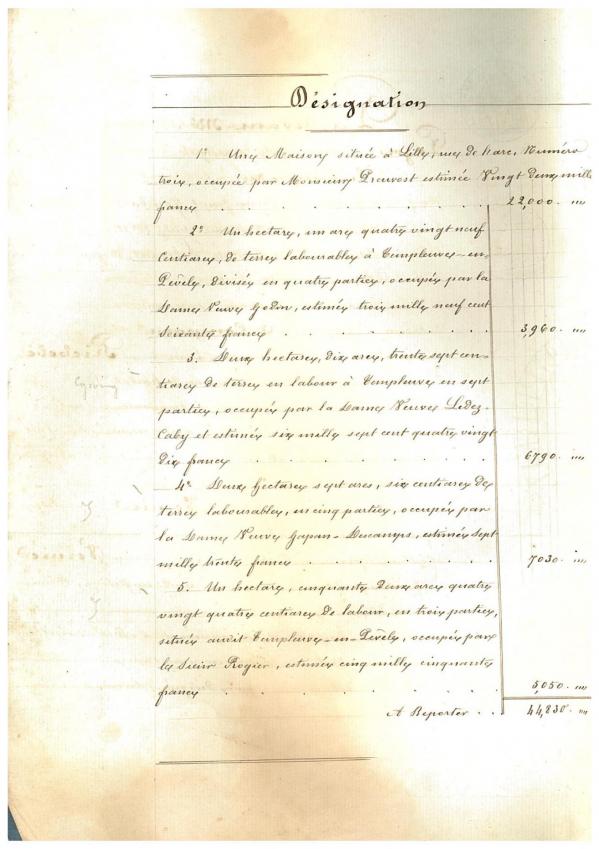 Désignation
1° Une Maison située à Lille, rue de Numéro
trois, occupée par Monsieur Prouvost estimée Vingt deux mille
francs . . . . . . . . 22,000. "
2° Un hectare, un are quatre vingt neuf
Centiares, de terres labourables à Templeuve-en-
Pévèle, divisés en quatre parties, occupés par la
Dame Veuve Godin, estimés trois mille neuf cent
soixante francs . . . . . . 3,960 "
3. Deux hectares, dix ares, trente sept cen-
tiares de terres en labour à Templeuve en sept
parties, occupés par la Dame Veuve Ledez-
Caby et estimés six mille sept cent quatre vingt
dix francs . . . . . . 6790. "
4° Deux hectares sept ares, six centiares de
terres labourables, en cinq parties, occupés par
la Dame Veuve Descamps, estimés sept
mille trente francs . . . . . 7030. "
5. Un hectare, cinquante deux ares quatre
vingt quatre centiares de labour, en trois parties,
situés audit Templeuve-en-Pévèle, occupés par
le Sieur Rogier, estimés cinq mille cinquante
francs . . . . . . . 5,050. "
A Reporter . . 44,830. "